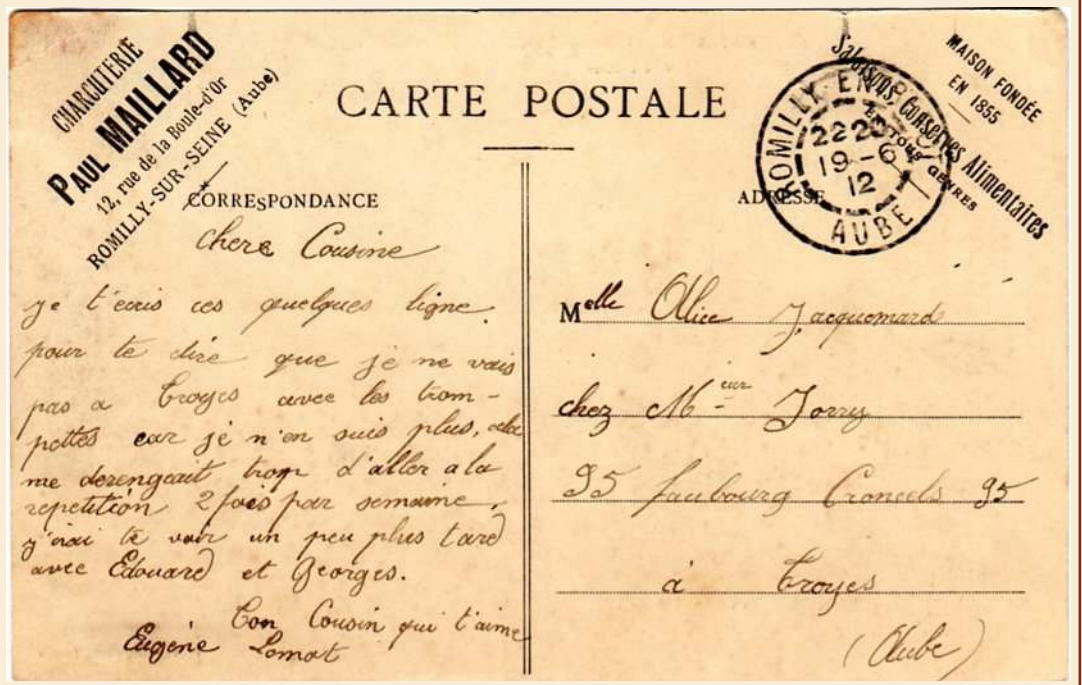 CHARCUTERIE
PAUL MAILLARD
12, rue de la Boule-d'Or
ROMILLY-SUR-SEINE (Aube)
CARTE POSTALE
MAISON FONDÉE
EN 1855
Salaisons, Conserves Alimentaires
EN TOUS GENRES
ROMILLY-EN
2220
19-6
12
AUBE
CORRESPONDANCE
ADRESSE
chere Cousine
je t'ecris ces quelques ligne
pour te dire que je ne vais
pas a Troyes avec les trom-
pettes car je n'en suis plus, cela
me derengeait trop d'aller a la
repetition 2 fois par semaine,
j'irai te voir un peu plus tard
avec Edouard et Georges.
Ton Cousin qui t'aime
Eugène Lomot
Melle Alice Jacquemard
chez Mr Jorry
95 faubourg Croncels 95
à Troyes
(Aube)